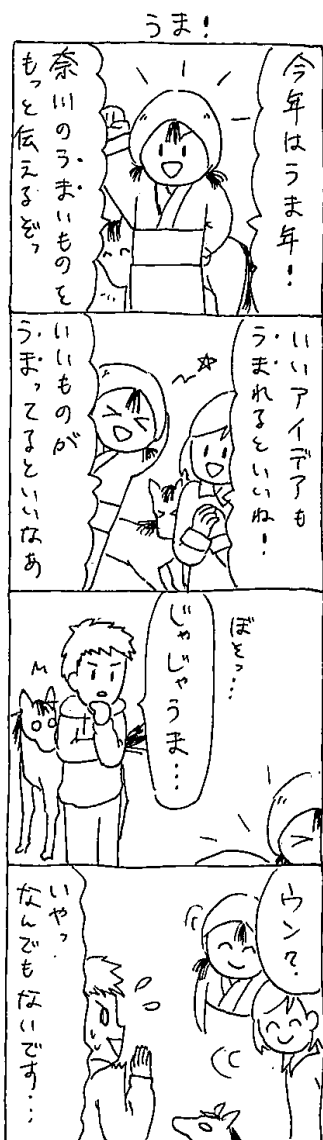 うま!
今年はうま年!
奈川のうまいものを
もっと伝えるぞっ
いいアイデアも
うまれるといいね!
いいものが
うまってるといいなあ
ぼそっ…
じゃじゃうま…
ウン?
いやっ
なんでもないです…